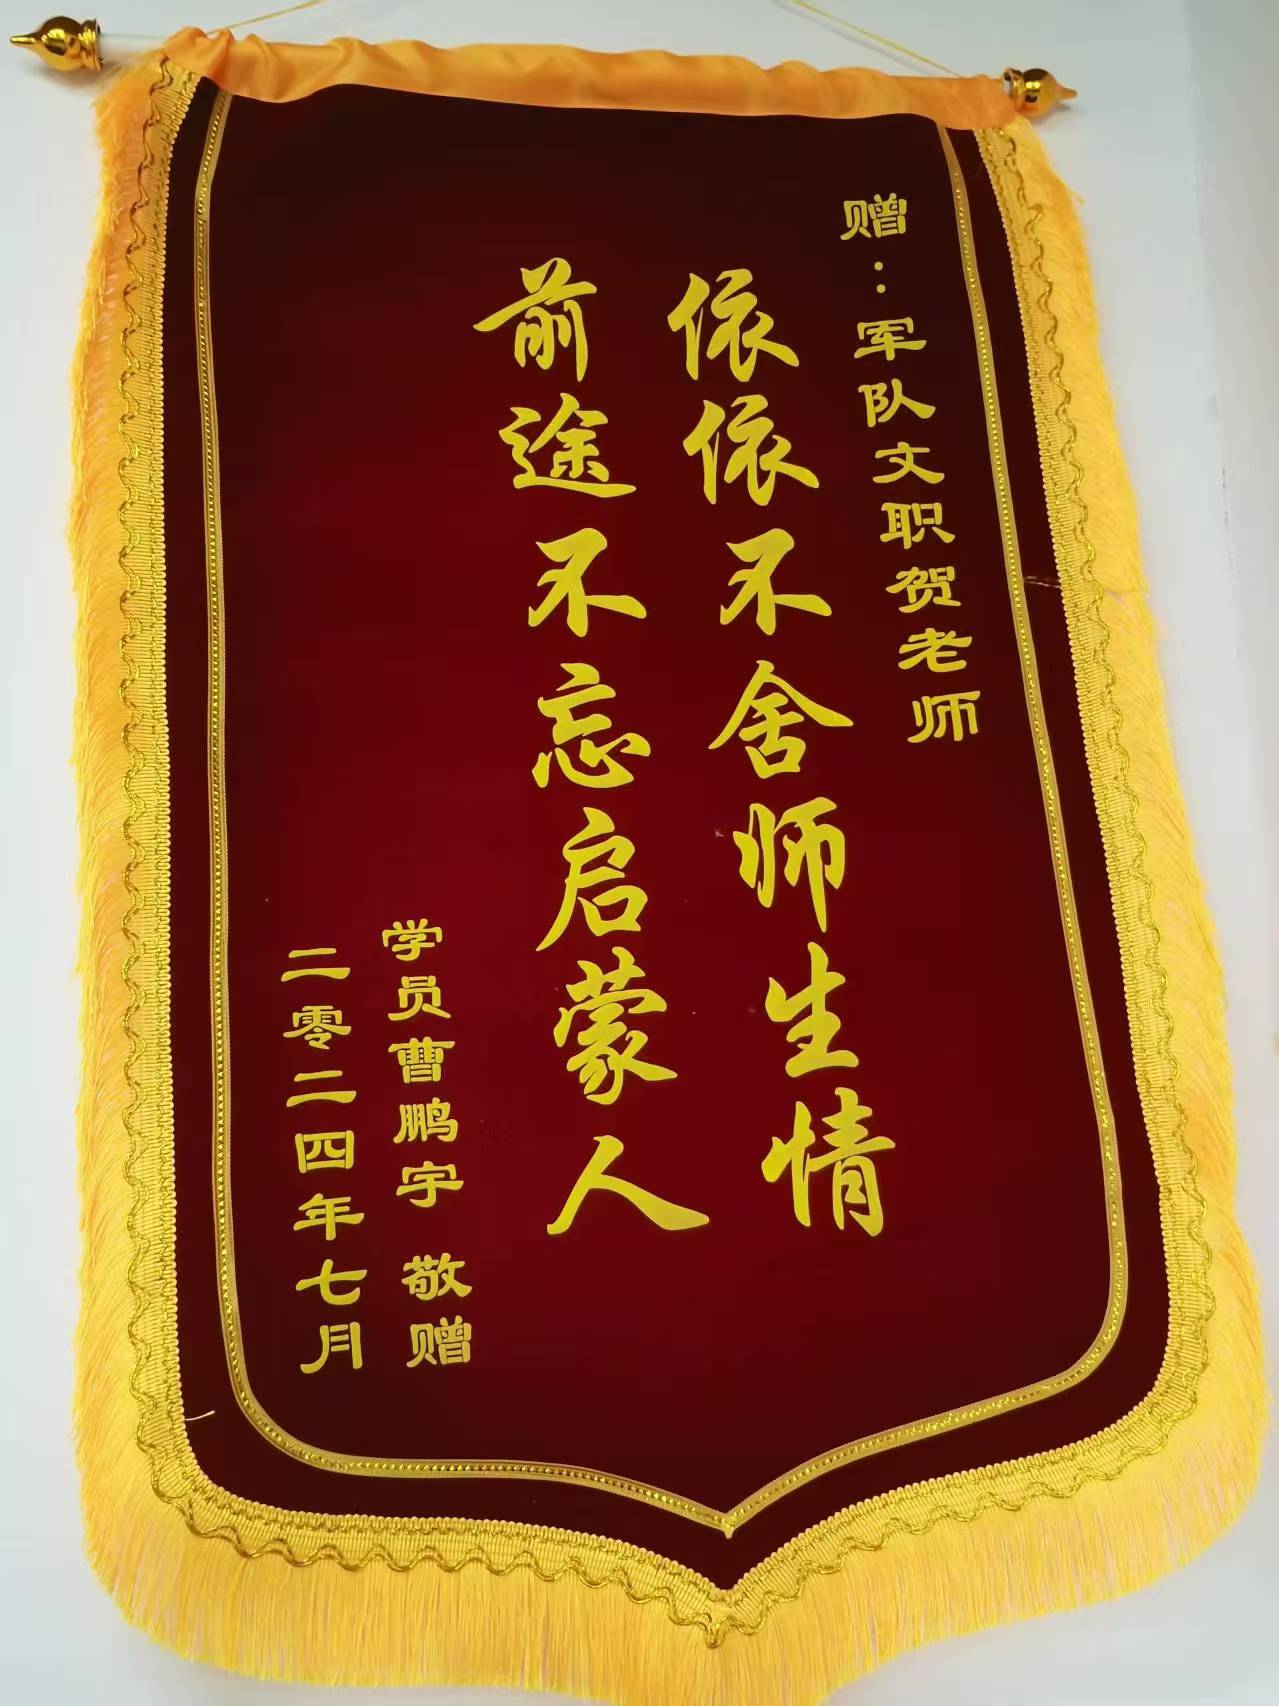 赠：军队文职贺老师
依依不舍师生情
前途不忘启蒙人
学员曹鹏宇 敬赠
二零二四年七月